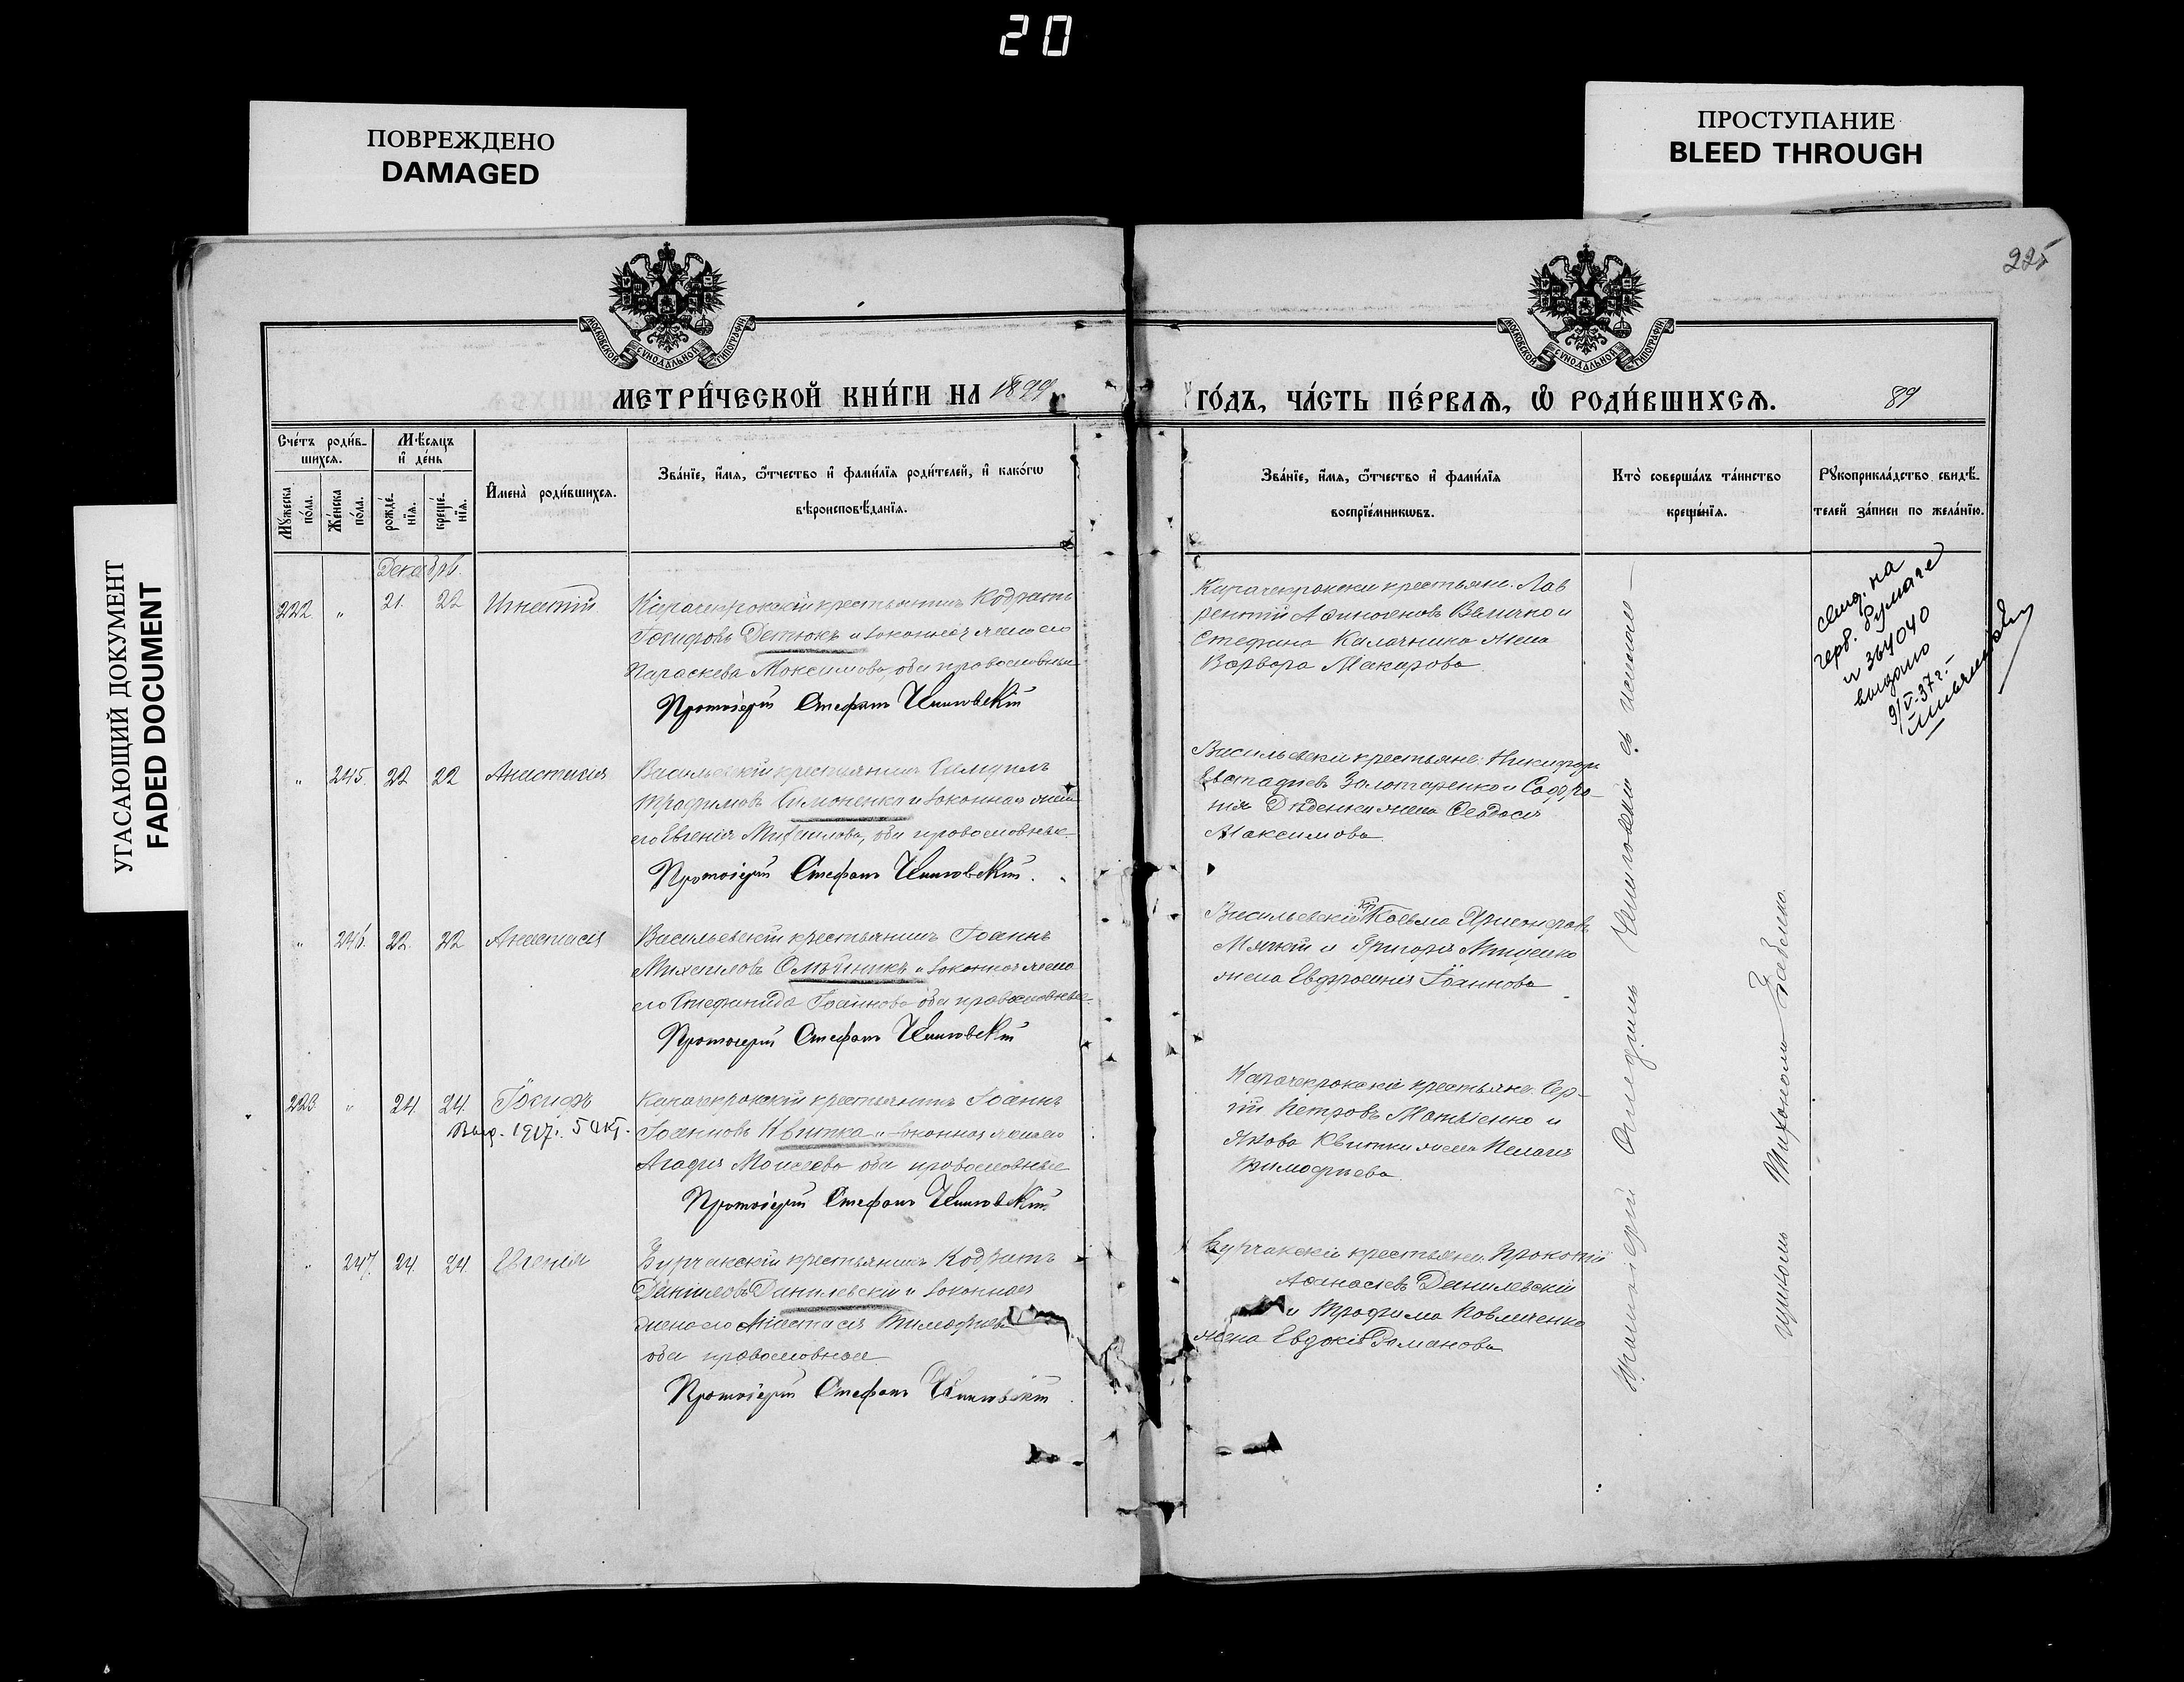 20
ПОВРЕЖДЕНО
DAMAGED
ПРОСТУПАНИЕ
BLEED THROUGH
УГАСАЮЩИЙ ДОКУМЕНТ
FADED DOCUMENT
225
МОСКОВСКОЙ СѴНОДАЛЬНОЙ ТИПОГРАФІИ
МОСКОВСКОЙ СѴНОДАЛЬНОЙ ТИПОГРАФІИ
МЕТРИ́ЧЕСКОЙ КНИ́ГИ НА 1899
ГО́ДЪ, ЧА́СТЬ ПЕ́РВАѦ, Ѡ РОДИ́ВШИХСѦ.
89
Сче́тъ роди́в-
шихсѧ.
Мꙋ́жеска
по́ла.
Же́нска
по́ла.
Мѣ́сѧцъ
и҆ де́нь
рожде́-
нїѧ.
креще́-
нїѧ.
И҆мена̀ роди́вшихсѧ.
Зва́нїе, и҆́мѧ, ѻ҆́тчество и҆ фами́лїѧ роди́телей, и҆ како́гѡ
вѣроисповѣ́данїѧ.
Зва́нїе, и҆́мѧ, ѻ҆́тчество и҆ фами́лїѧ
воспрїе́мникѡвъ.
Кто̀ соверша́лъ та́инство
креще́нїѧ.
Рꙋкоприкла́дство свидѣ́-
телей за́писи по жела́нїю.
Декабрь.
222 " 21. 22 Игнатій
Карачекрокскій крестьянинъ Кодратъ
Іосифовъ Детюкъ и законная жена его
Параскева Максимова, оба православные
Протоіерей Стефанъ
Карачекрокскіе крестьяне: Лав
рентій Афиногеновъ Величко и
Стефана Калачника жена
Варвара Макарова
свид. на
герб. бумаге
н 364040
выдано
9/V-37 г.
" 245. 22 22 Анастасія
Васильевскій крестьянинъ
Трофимовъ Симоненко и законная жена
его Евгенія Михаилова, оба православные.
Протоіерей Стефанъ
Васильевскіе крестьяне: Никифоръ
Евстафіевъ Золотаренко и Софро-
нія Дѣденка жена Феодосія
Максимова
" 246. 22. 22 Анастасія
Васильевскій крестьянинъ Іоаннъ
Михаиловъ Олѣйникъ и законная жена
его Стефанида Іоаннова оба православные.
Протоіерей Стефанъ
Васильевскій кр Козьма
и Григорія Мищенко
жена Евфросинія Іоаннова
223 " 24. 24. Іосифъ
Выд. 1917г. 5 окт.
Карачекрокскій крестьянинъ Іоаннъ
Іоанновъ Квитка и законная жена его
Агафія Моисеева оба православные
Протоіерей Стефанъ
Карачекрокскіе крестьяне: Сер-
гій Петровъ Матвіенко и
Якова Квитки жена Пелагія
Тимофеева.
" 247. 24. 24. Евгенія
Бурчакскій крестьянинъ Кодратъ
Даніиловъ Данилевскій и законная
жена его Анастасія Тимофеева
оба православные
Протоіерей Стефанъ
Бурчакскіе крестьяне: Прокопій
Афанасіевъ Данилевскій
и Трофима Павличенко
жена Евдокія Романова
Протоіерей Стефанъ съ
Тихономъ